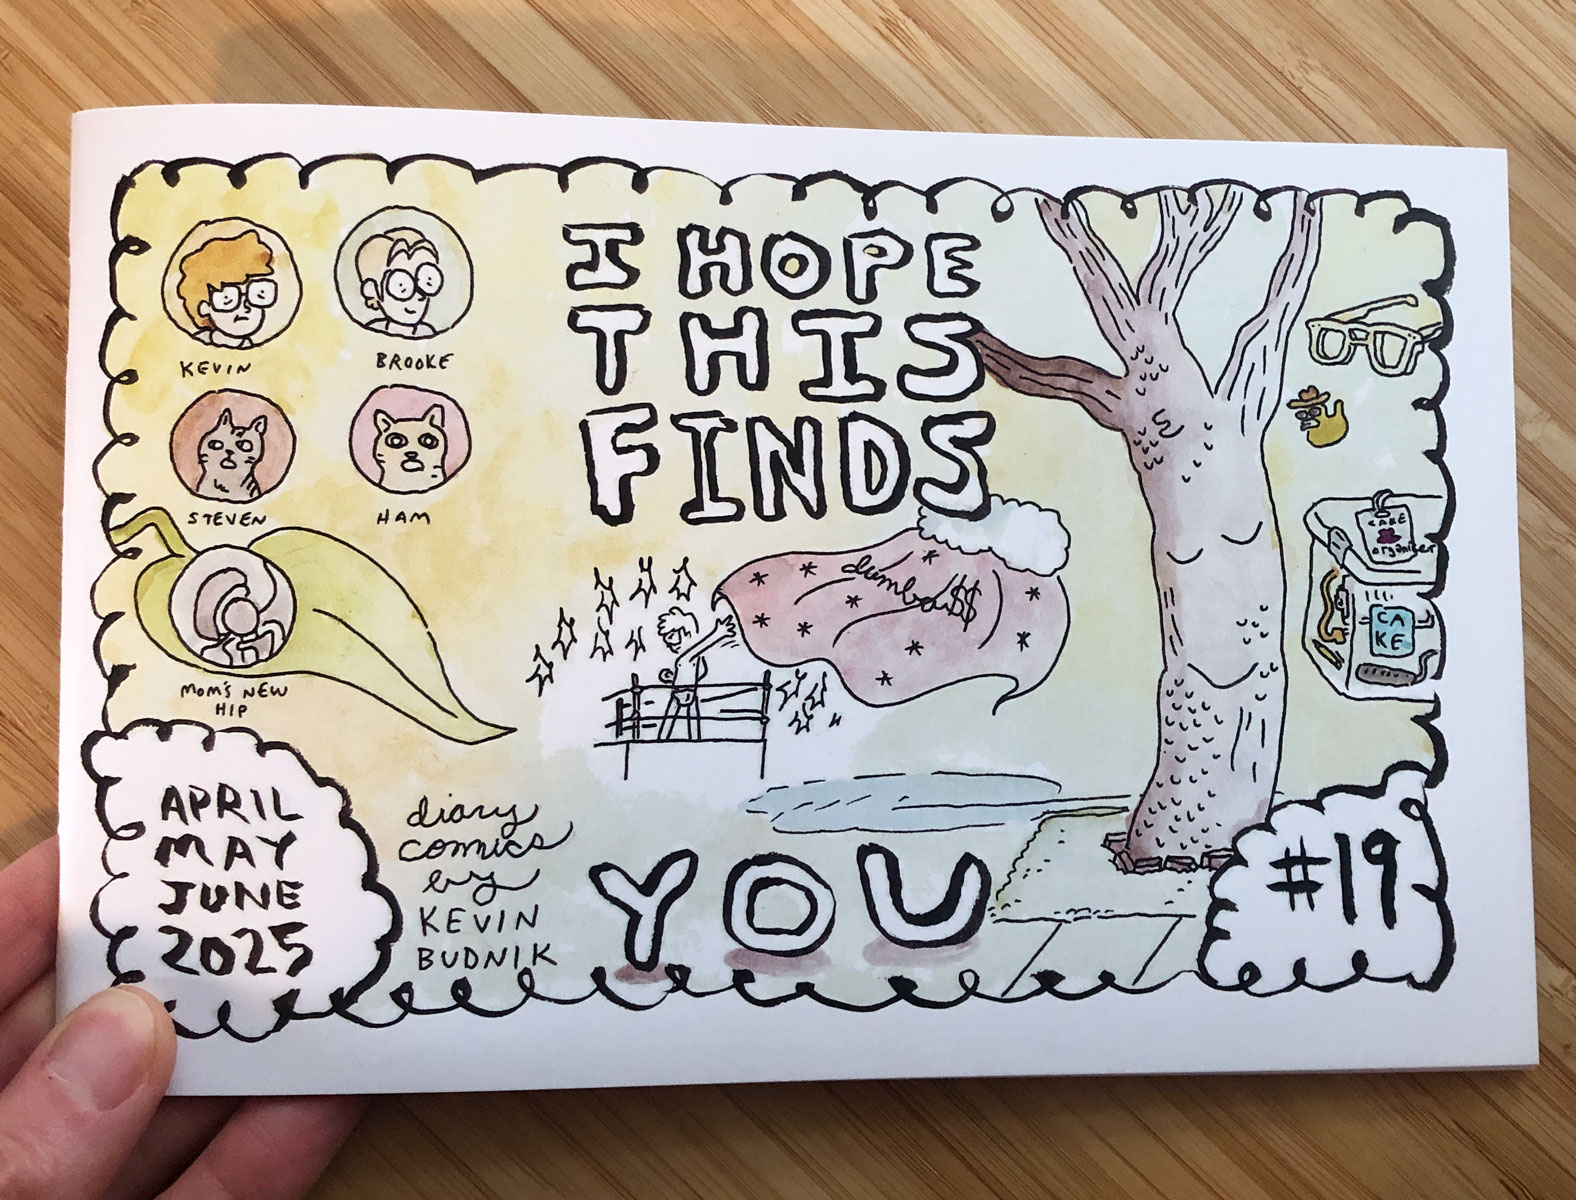 I HOPE
THIS
FINDS
YOU
KEVIN
BROOKE
STEVEN
HAM
MOM'S NEW
HIP
dumba$$
CAKE
organizer
CA
KE
APRIL
MAY
JUNE
2025
diary
comics
by
KEVIN
BUDNIK
#19